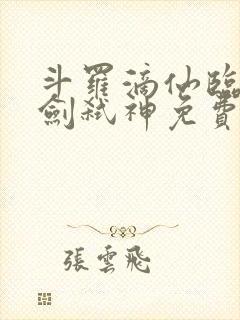 斗羅滴仙臨
劍弒神免費
張雲飛